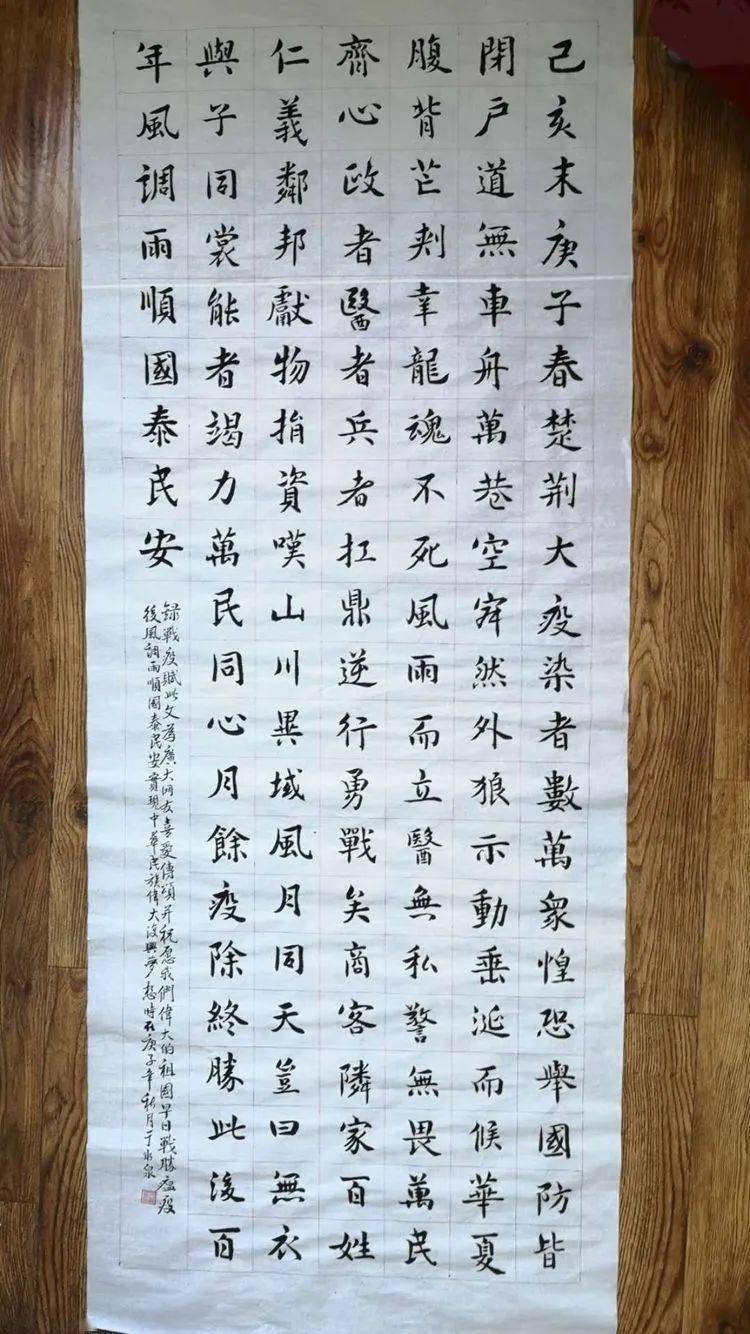 己亥末庚子春楚荆大疫染者數萬衆惶恐舉國防皆
閉户道無車舟萬巷空寂然外狼示動垂涎而候華夏
腹背芒刺幸龍魂不死風雨而立醫無私警無畏萬民
齊心政者醫者兵者扛鼎逆行勇戰矣商客隣家百姓
仁義鄰邦獻物捐資嘆山川異域風月同天豈曰無衣
與子同裳能者竭力萬民同心月餘疫除終勝此後百
年風調雨順國泰民安
録戰疫賦此文為廣大網友喜愛傳頌并祝愿我們偉大的祖國早日戰勝瘟疫
後風調雨順國泰民安實現中華民族偉大復興夢想時在庚子年秋月于水泉